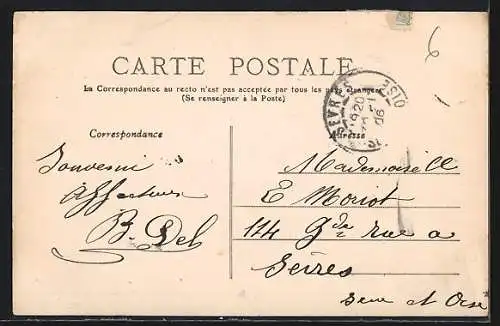 6
CARTE POSTALE
La Correspondance au recto n'est pas acceptée par tous les pays étrangers
(Se renseigner à la Poste)
SEVRES
06
Correspondance
Adresse
Souvenir
Affectueux
B. Del
Mademoiselle
E Moriot
114 Gde rue a
Sèvres
Seine et Oise